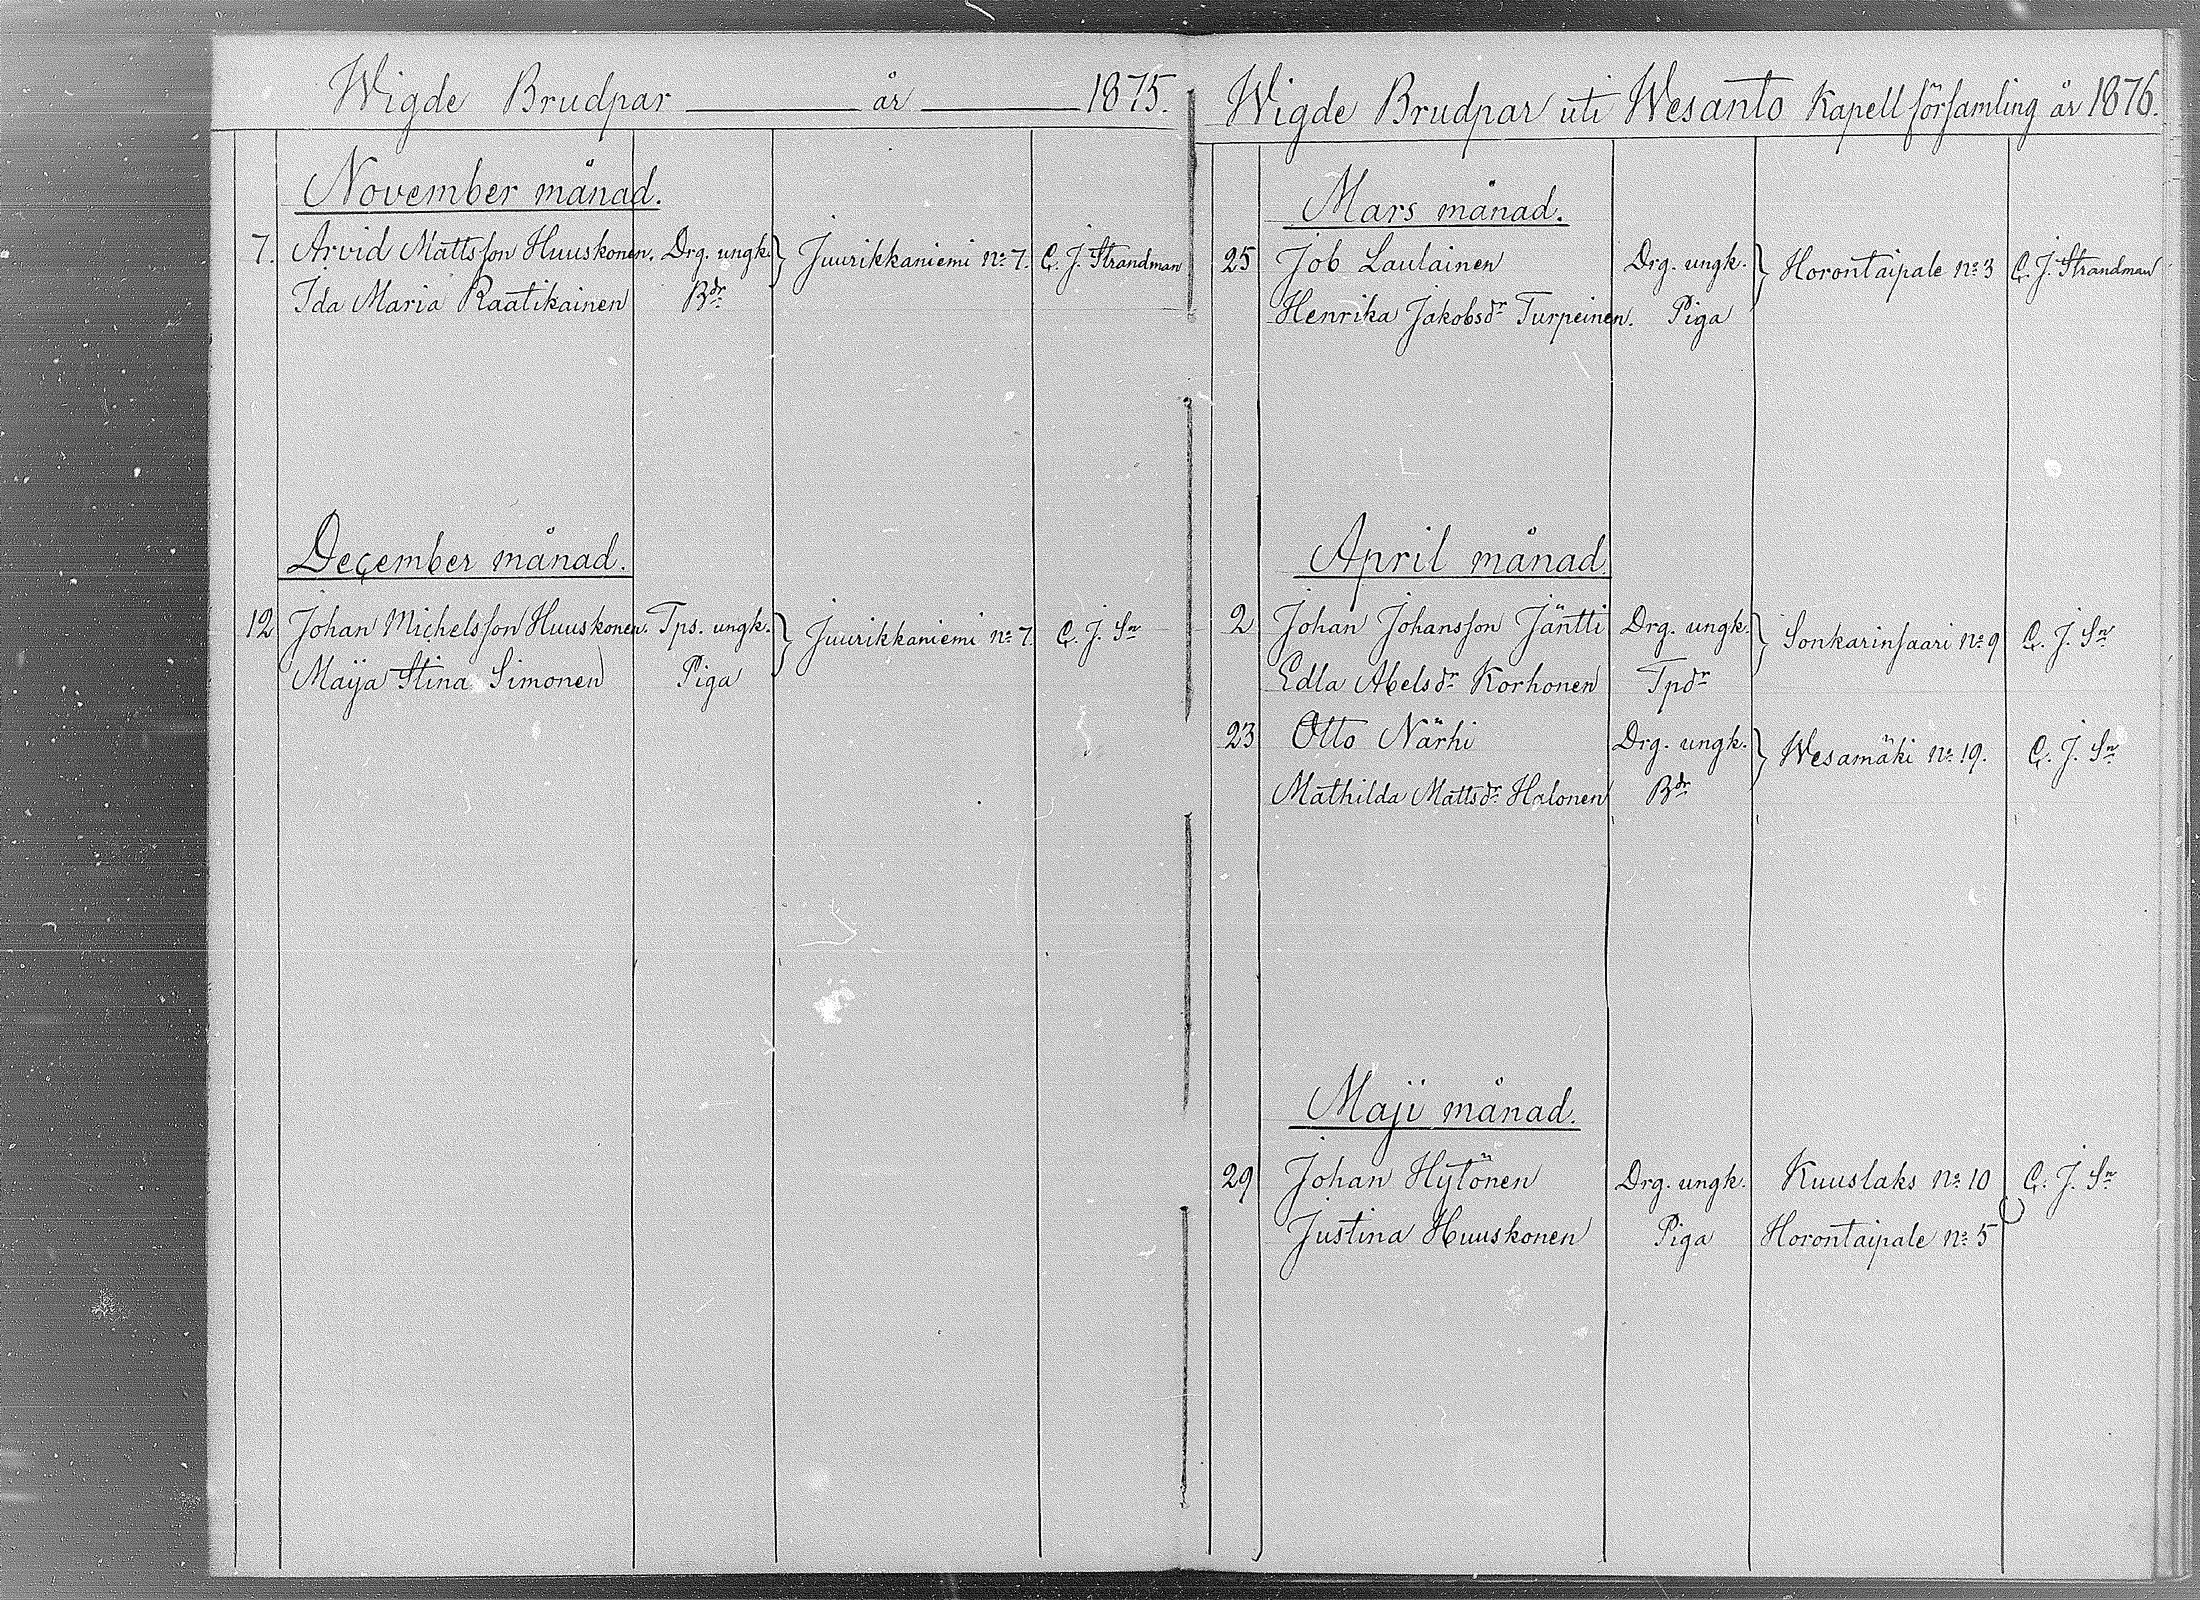 Wigde Brudpar år 1875.
November månad.
7. Arvid Mattsson Huuskonen. Drg. ungk. } Juurikkaniemi No 7. C. J. Strandman
Ida Maria Raatikainen Bdr
December månad.
12 Johan Michelsson Huuskonen. Tps. ungk. } Juurikkaniemi No 7. C. J. Sn
Maija Stina Simonen Piga
Wigde Brudpar uti Wesanto Kapell församling år 1876.
Mars månad.
25 Job Laulainen Drg. ungk. } Horontaipale No 3 C. J. Strandman
Henrika Jakobsdr Turpeinen. Piga
April månad.
2 Johan Johansson Jäntti Drg. ungk. } Sonkarinsaari No 9 C. J. Sn
Edla Abelsdr Korhonen Tpdr
23 Otto Närhi Drg. ungk. } Wesamäki No 19. C. J. Sn
Mathilda Mattsdr Halonen Bdr
Maji månad.
29 Johan Hytönen Drg. ungk. Kuuslaks No 10 C. J. Sn
Justina Huuskonen Piga Horontaipale No 5